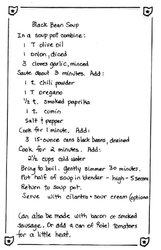 Black Bean Soup
In a soup pot combine:
1 T olive oil
1 onion, diced
3 cloves garlic, minced
Saute about 3 minutes. Add:
1 t. chili powder
1 T oregano
1/2 t. smoked paprika
1 t. comin
Salt + pepper
Cook for 1 minute. Add:
3 15-ounce cans black beans, drained
Cook for 2 minutes. Add:
2 1/2 cups cold water
Bring to boil. Gently simmer 30 minutes.
Put half of soup in blender - high - 5 seconds
Return to soup pot.
Serve with cilantro + sour cream (optional)
Can also be made with bacon or smoked
sausage. Or add a can of Rotel tomatoes
for a little heat.